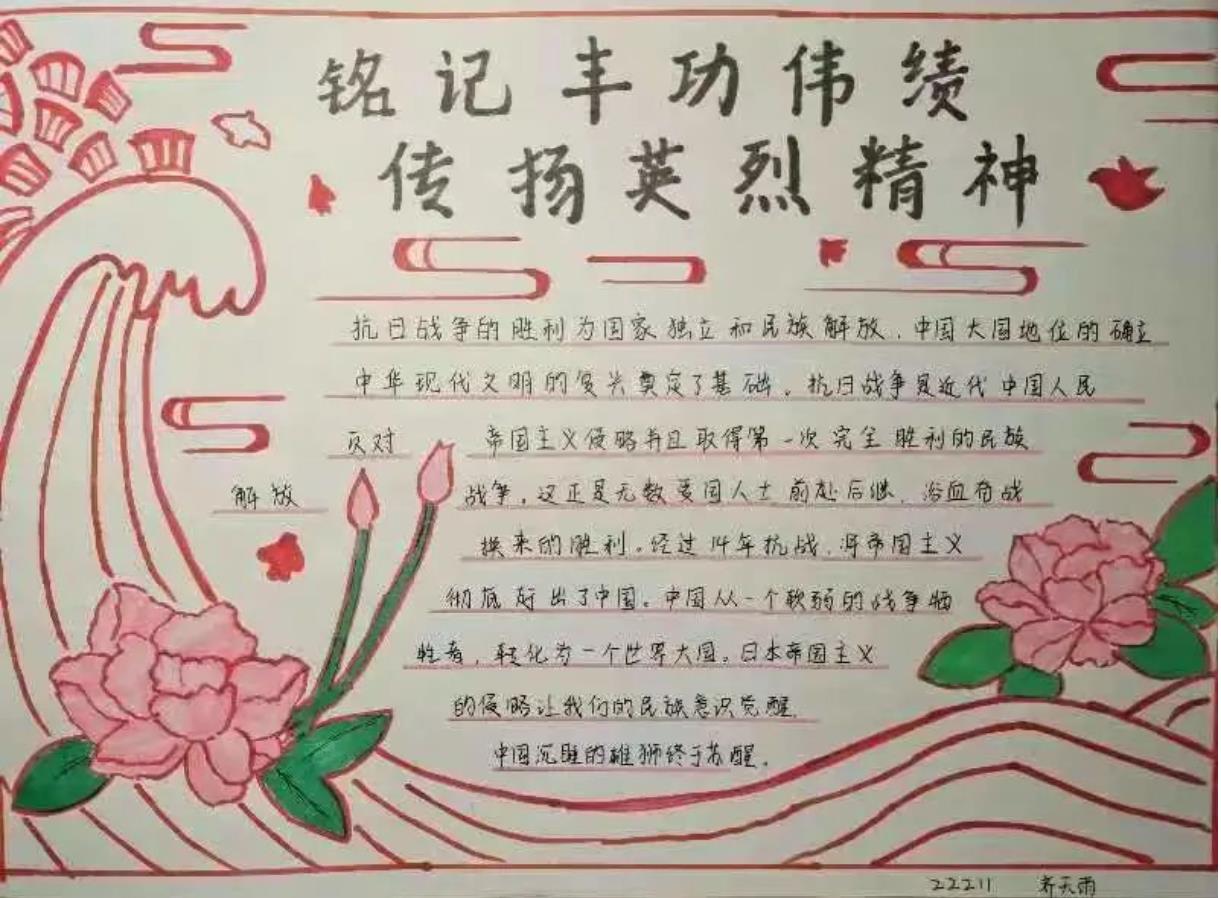 铭记丰功伟绩
传扬英烈精神
抗日战争的胜利为国家独立和民族解放，中国大国地位的确立
中华现代文明的复兴奠定了基础。抗日战争是近代中国人民
反对 帝国主义侵略并且取得第一次完全胜利的民族
解放 战争，这正是无数爱国人士前赴后继、浴血奋战
换来的胜利。经过14年抗战，将帝国主义
彻底赶出了中国。中国从一个软弱的战争牺
牲者，转化为一个世界大国。日本帝国主义
的侵略让我们的民族意识觉醒，
中国沉睡的雄狮终于苏醒。
22211 齐天雨